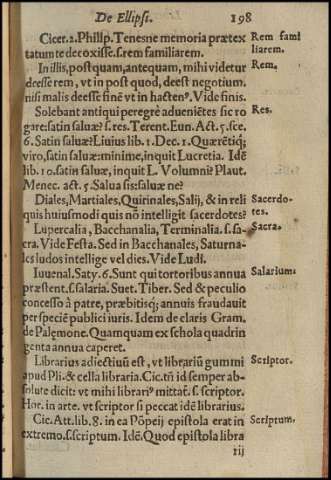 De Ellipsi. 198
Cicer. 2. Philip. Tenesne memoria prætex Rem fami
tatum te decoxisse. s. rem familiarem. liarem.
In illis, postquam, antequam, mihi videtur Rem.
deesse rem, vt in post quod, deest negotium.
nisi malis deesse finẽ vt in hactenꝰ. Vide finis.
Solebant antiqui peregrè adueniẽtes sic ro Res.
gare: satin saluæ? s. res. Terent. Eun. Act. 5. sce.
6. Satin saluæ? Liuius lib. 1. Dec. 1. Quærẽtiq;
viro, satin saluæ: minime, inquit Lucretia. Idẽ
lib. 10. satin saluæ, inquit L. Volumni? Plaut.
Menec. act. 5. Salua sis: saluæ ne?
Diales, Martiales, Quirinales, Salij, & in reli Sacerdo-
quis huiusmodi quis nõ intelligit sacerdotes? tes.
Lupercalia, Bacchanalia, Terminalia. s. sa- Sacra.
cra. Vide Festa. Sed in Bacchanales, Saturna-
les ludos intellige vel dies. Vide Ludi.
Iuuenal. Saty. 6. Sunt qui tortoribus annua Salarium.
præstent. s. salaria. Suet. Tiber. Sed & peculio
concesso à patre, præbitisq; annuis fraudauit
per speciẽ publici iuris. Idem de claris Gram.
de Palęmone. Quamquam ex schola quadrin
genta annua caperet.
Librarius adiectiuũ est, vt librariũ gummi Scriptor.
apud Pli. & cella libraria. Cic. tñ id semper ab-
solute dicit: vt mihi librariꝰ mittat̃. s. scriptor.
Hor. in arte. vt scriptor si peccat idẽ librarius.
Cic. Att. lib. 8. in ea Põpeij epistola erat in Scriptum.
extremo. s. scriptum. Idẽ. Quod epistola libra
iij